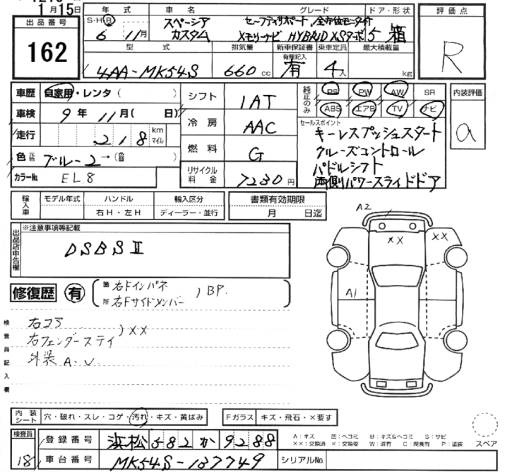 月15日
出品番号
162
年式
S・H・R
6年11月
車名
スペーシア
カスタム
グレード
セーフティサポート 全方位モニター
メモリーナビ HYBRID XSターボ
ドア・形状
5 箱
評価点
R
型式
4AA-MK54S
排気量
660cc
新車保証書
有
乗車定員
4人
最大積載量
kg
車歴 自家用・レンタ( )
車検 9年11月( 日)
走行 218 km マイル
色 ブルー2→
カラーNo. EL8
シフト 1AT
冷房 AAC
燃料 G
リサイクル料金 7230円
純正のみ
PS PW AW SR
ABS エアB TV ナビ
内装評価
a
セールスポイント
キーレスプッシュスタート
クルーズコントロール
パドルシフト
両側パワースライドドア
輸入車
モデル年式
ハンドル
右H・左H
輸入区分
ディーラー・並行
書類有効期限
月 日迄
出品店申告欄
※注意事項等記載
DSBSⅡ
修復歴 有
右Fインパネ
右Fサイドメンバー
BP.
検査員記入欄
右コア
右フェンダーステイ
XX
外装A.U
A2
XX XX
A1
内装シート
穴・破れ・スレ・コゲ・汚れ・キズ・黄ばみ
Fガラス キズ・飛石・×要す
検査員
18
登録番号 浜松582か9288
車台番号 MK54S-137749
シリアルNo.
スペア